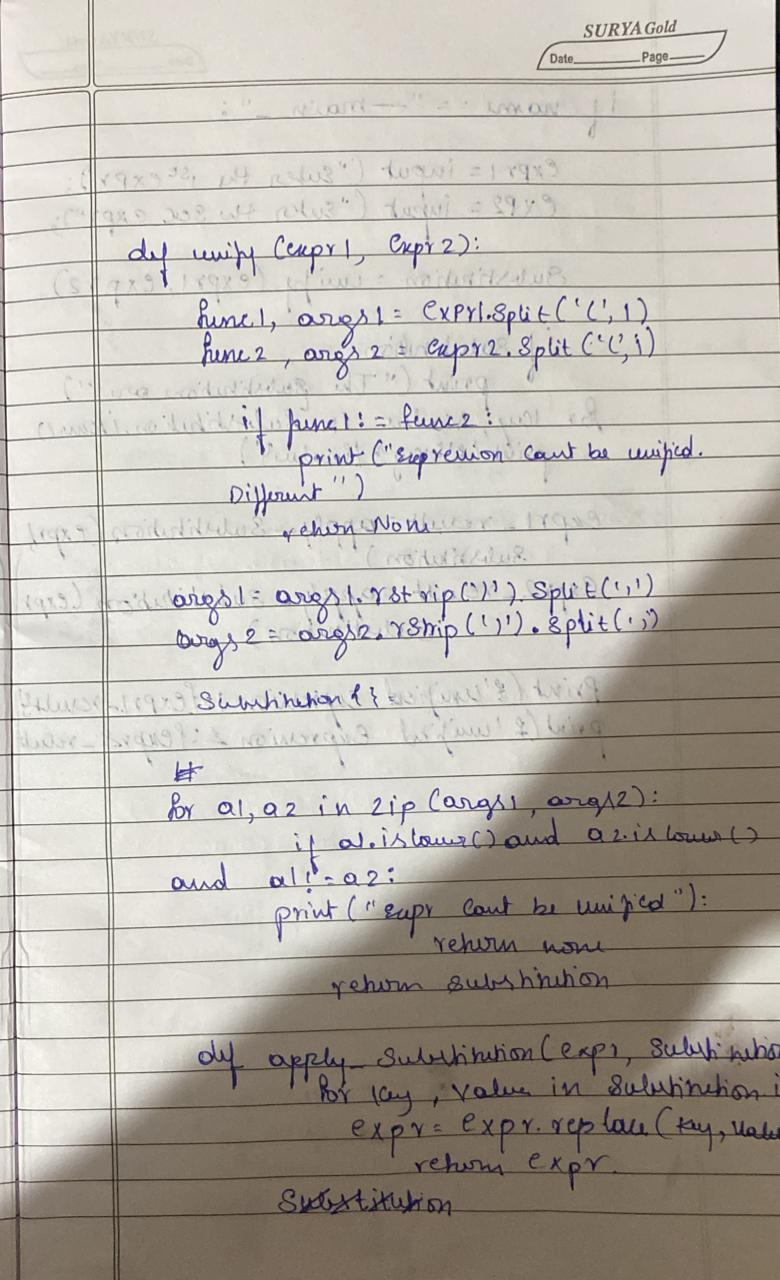 SURYA Gold
Date Page
def unify (expr1, Expr2):
func1, args1 = Expr1.Split('(', 1)
func2, args2 = expr2.Split('(', 1)
if func1 != func2:
print ("Expression Cant be unified.
Different")
return None
args1 = args1.rstrip(')').Split(',')
args2 = args2.rstrip(')').Split(',')
Substitution { } =
#
for a1, a2 in zip (args1, args2):
if a1.islower() and a2.islower()
and a1 != a2:
print ("expr Cant be unified"):
return none
return substitution
def apply_Substitution (expr, Substitutio
for key, value in Substitution i
expr = expr.replace (key, value
return expr.
Substitution